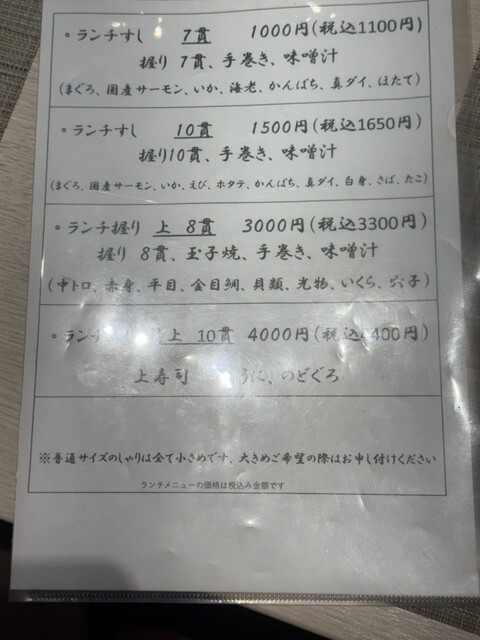 • ランチすし 7貫 1000円(税込1100円)
握り 7貫、手巻き、味噌汁
(まぐろ、国産サーモン、いか、海老、かんぱち、真ダイ、ほたて)
• ランチすし 10貫 1500円(税込1650円)
握り10貫、手巻き、味噌汁
(まぐろ、国産サーモン、いか、えび、ホタテ、かんぱち、真ダイ、白身、さば、たこ)
• ランチ握り 上 8貫 3000円(税込3300円)
握り 8貫、玉子焼、手巻き、味噌汁
(中トロ、赤身、平目、金目鯛、貝類、光物、いくら、穴子)
• ランチ 上 10貫 4000円(税込 400円)
上寿司 うに、のどぐろ
※普通サイズのしゃりは全て小さめです、大きめご希望の際はお申し付けください
ランチメニューの価格は税込み金額です